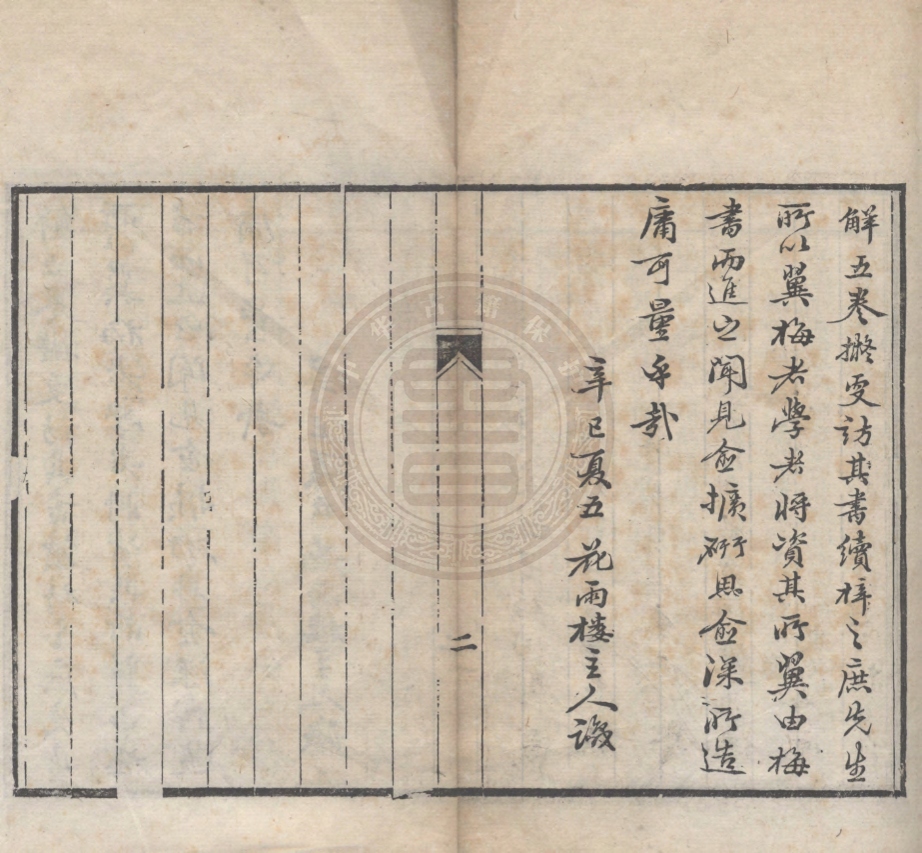 解五卷擬更訪其書續梓之庶先生
所以翼梅者學者將資其所翼由梅
書而進之聞見愈擴研思愈深所造
庸可量乎哉
辛巳夏五花雨樓主人識
二